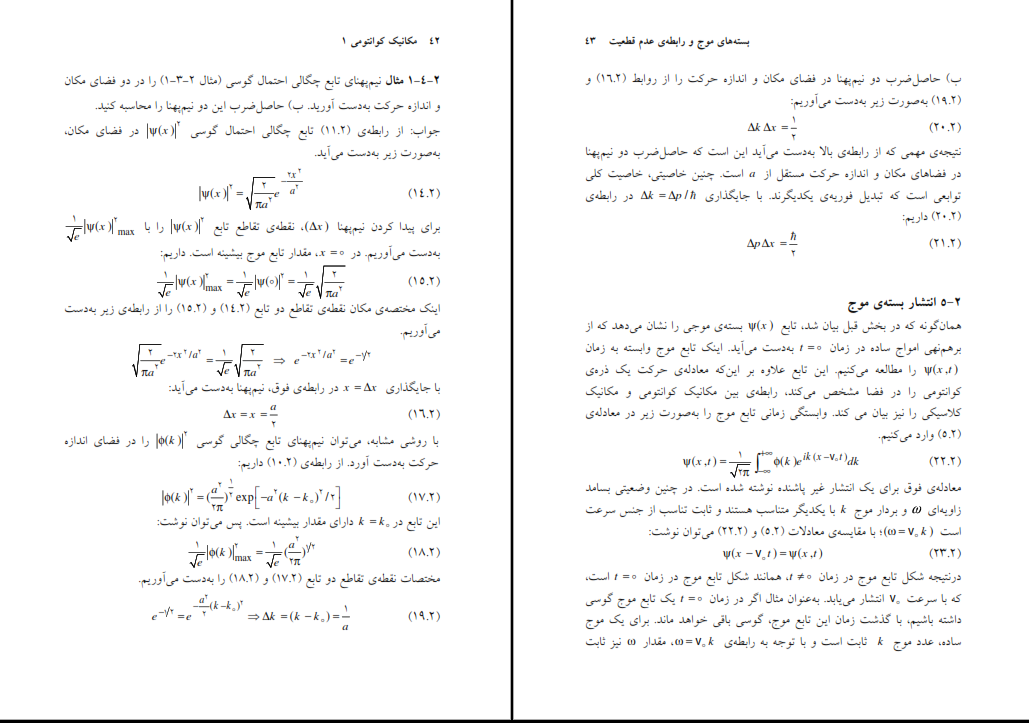 ۴۲ مکانیک کوانتومی ۱
۲-۴-۱ مثال نیم‌پهنای تابع چگالی احتمال گوسی (مثال ۲-۳-۱) را در دو فضای مکان
و اندازه حرکت به‌دست آورید. ب) حاصل‌ضرب این دو نیم‌پهنا را محاسبه کنید.
جواب: از رابطه‌ی (۱۱.۲) تابع چگالی احتمال گوسی |ψ(x)|^۲ در فضای مکان،
به‌صورت زیر به‌دست می‌آید.
|ψ(x)|^۲ = √(۲/πa^۲) e^(−۲x^۲/a^۲) (۱۴.۲)
برای پیدا کردن نیم‌پهنا (Δx)، نقطه‌ی تقاطع تابع |ψ(x)|^۲ را با ۱/√e |ψ(x)|^۲_max
به‌دست می‌آوریم. در x = ۰، مقدار تابع موج بیشینه است. داریم:
۱/√e |ψ(x)|^۲_max = ۱/√e |ψ(۰)|^۲ = ۱/√e √(۲/πa^۲) (۱۵.۲)
اینک مختصه‌ی مکان نقطه‌ی تقاطع دو تابع (۱۴.۲) و (۱۵.۲) را از رابطه‌ی زیر به‌دست
می‌آوریم.
√(۲/πa^۲) e^(−۲x^۲/a^۲) = ۱/√e √(۲/πa^۲) ⇒ e^(−۲x^۲/a^۲) = e^(−۱/۲)
با جایگذاری x = Δx در رابطه‌ی فوق، نیم‌پهنا به‌دست می‌آید:
Δx = x = a/۲ (۱۶.۲)
با روشی مشابه، می‌توان نیم‌پهنای تابع چگالی گوسی |ϕ(k)|^۲ را در فضای اندازه
حرکت به‌دست آورد. از رابطه‌ی (۱۰.۲) داریم:
|ϕ(k)|^۲ = (a^۲/۲π)^(۱/۲) exp[−a^۲(k − k₀)^۲/۲] (۱۷.۲)
این تابع در k = k₀ دارای مقدار بیشینه است. پس می‌توان نوشت:
۱/√e |ϕ(k)|^۲_max = ۱/√e (a^۲/۲π)^(۱/۲) (۱۸.۲)
مختصات نقطه‌ی تقاطع دو تابع (۱۷.۲) و (۱۸.۲) را به‌دست می‌آوریم.
e^(−۱/۲) = e^(−a^۲/۲ (k−k₀)^۲) ⇒ Δk = (k − k₀) = ۱/a (۱۹.۲)
بسته‌های موج و رابطه‌ی عدم قطعیت ۴۳
ب) حاصل‌ضرب دو نیم‌پهنا در فضای مکان و اندازه حرکت را از روابط (۱۶.۲) و
(۱۹.۲) به‌صورت زیر به‌دست می‌آوریم:
Δk Δx = ۱/۲ (۲۰.۲)
نتیجه‌ی مهمی که از رابطه‌ی بالا به‌دست می‌آید این است که حاصل‌ضرب دو نیم‌پهنا
در فضاهای مکان و اندازه حرکت مستقل از a است. چنین خاصیتی، خاصیت کلی
توابعی است که تبدیل فوریه‌ی یکدیگرند. با جایگذاری Δk = Δp/ħ در رابطه‌ی
(۲۰.۲) داریم:
Δp Δx = ħ/۲ (۲۱.۲)
۲-۵ انتشار بسته‌ی موج
همان‌گونه که در بخش قبل بیان شد، تابع ψ(x) بسته‌ی موجی را نشان می‌دهد که از
برهم‌نهی امواج ساده در زمان t = ۰ به‌دست می‌آید. اینک تابع موج وابسته به زمان
ψ(x,t) را مطالعه می‌کنیم. این تابع علاوه بر این‌که معادله‌ی حرکت یک ذره‌ی
کوانتومی را در فضا مشخص می‌کند، رابطه‌ی بین مکانیک کوانتومی و مکانیک
کلاسیکی را نیز بیان می کند. وابستگی زمانی تابع موج را به‌صورت زیر در معادله‌ی
(۵.۲) وارد می‌کنیم.
ψ(x,t) = ۱/√۲π ∫_{−∞}^{+∞} ϕ(k)e^{ik(x−v₀t)}dk (۲۲.۲)
معادله‌ی فوق برای یک انتشار غیر پاشنده نوشته شده است. در چنین وضعیتی بسامد
زاویه‌ای ω و بردار موج k با یکدیگر متناسب هستند و ثابت تناسب از جنس سرعت
است (ω = v₀k)؛ با مقایسه‌ی معادلات (۵.۲) و (۲۲.۲) می‌توان نوشت:
ψ(x − v₀t) = ψ(x,t) (۲۳.۲)
درنتیجه شکل تابع موج در زمان t ≠ ۰، همانند شکل تابع موج در زمان t = ۰ است،
که با سرعت v₀ انتشار می‌یابد. به‌عنوان مثال اگر در زمان t = ۰ یک تابع موج گوسی
داشته باشیم، با گذشت زمان این تابع موج، گوسی باقی خواهد ماند. برای یک موج
ساده، عدد موج k ثابت است و با توجه به رابطه‌ی ω = v₀k، مقدار ω نیز ثابت